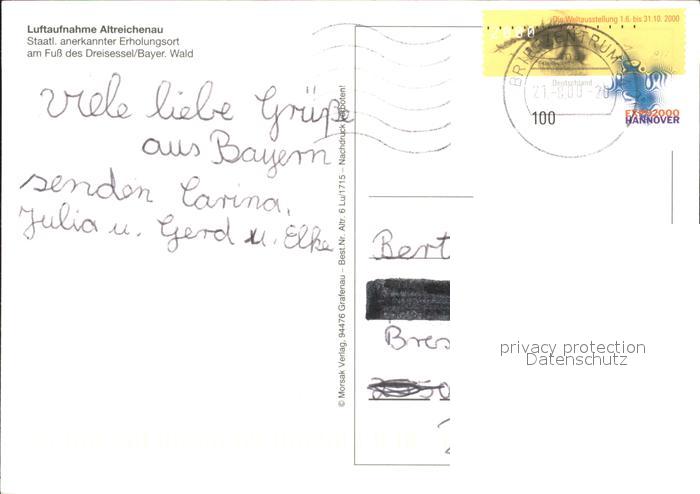 Luftaufnahme Altreichenau
Staatl. anerkannter Erholungsort
am Fuß des Dreisessel/Bayer. Wald
Viele liebe Grüße
aus Bayern
senden Carina,
Julia u. Gerd u. Elke
© Morsak Verlag, 94476 Grafenau – Best.Nr. Altr. 6 Lu/1715 – Nachdruck verboten!
Die Weltausstellung 1.6. bis 31.10. 2000
2000
BRIEFZENTRUM
Deutschland
100
EXPO2000
HANNOVER
Bert
Bres
privacy protection
Datenschutz